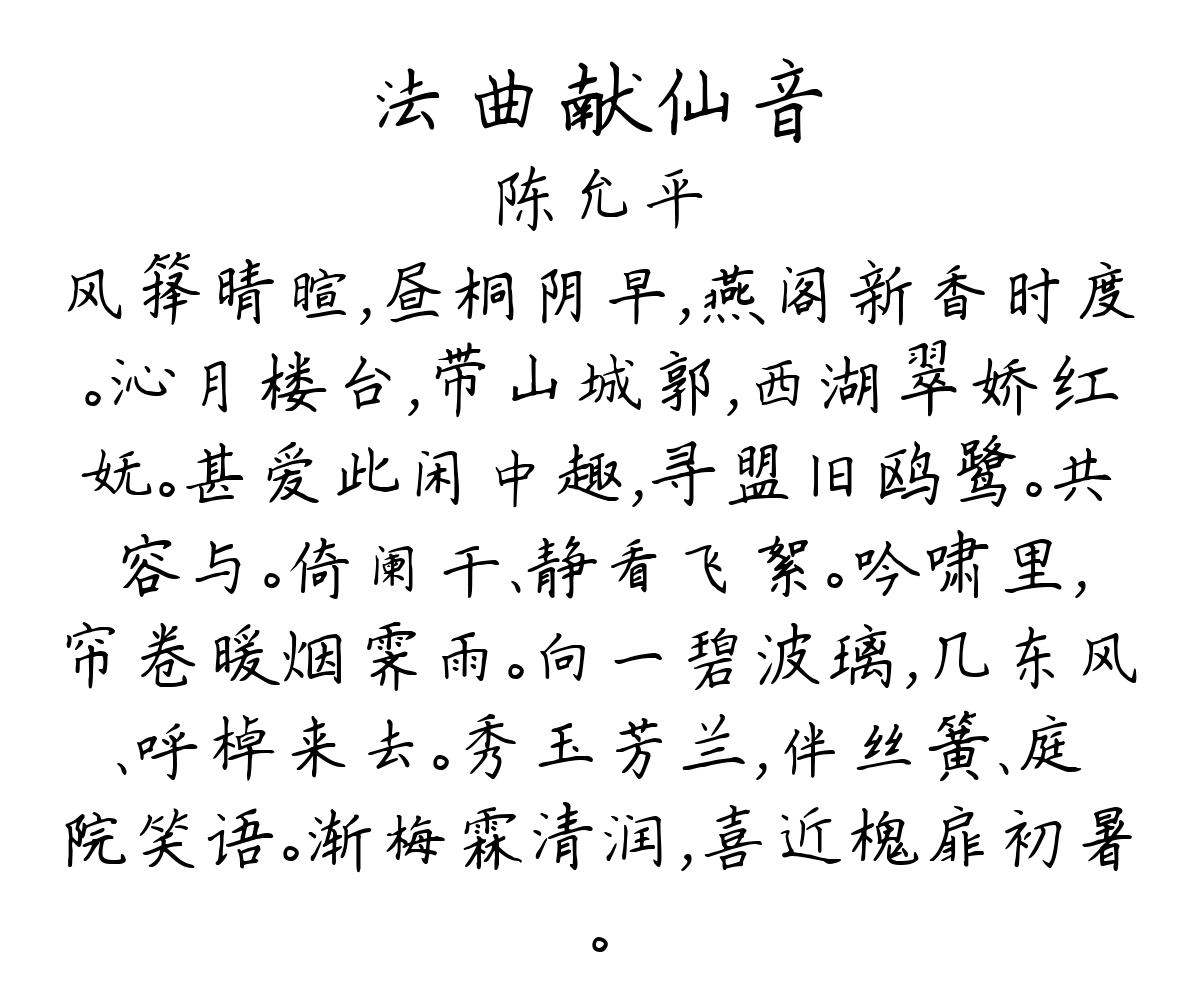 法曲献仙音
陈允平
风箨晴暄,昼桐阴早,燕阁新香时度
。沁月楼台,带山城郭,西湖翠娇红
妩。甚爱此闲中趣,寻盟旧鸥鹭。共
容与。倚阑干、静看飞絮。吟啸里,
帘卷暖烟霁雨。向一碧波璃,几东风
、呼棹来去。秀玉芳兰,伴丝簧、庭
院笑语。渐梅霖清润,喜近槐扉初暑
。